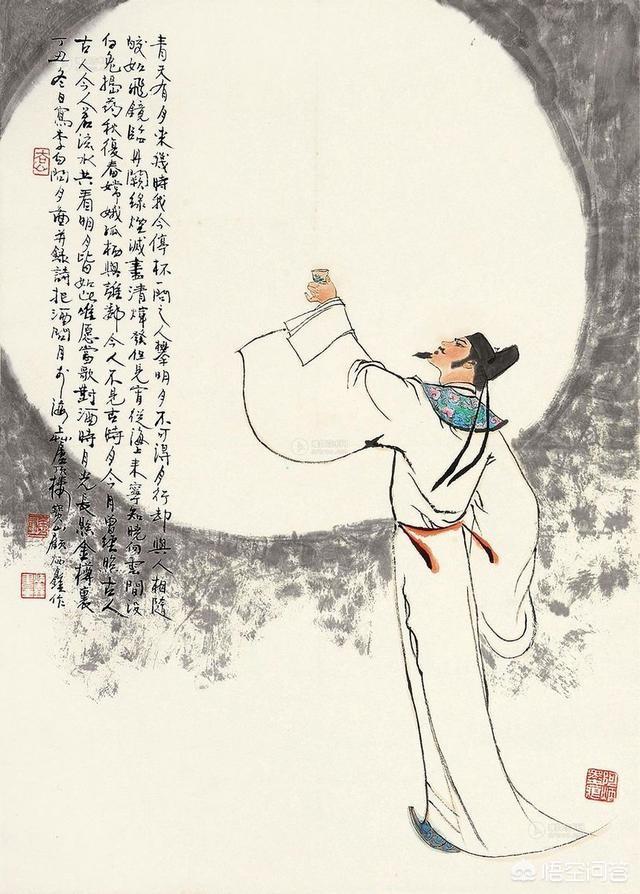 青天有月来幾時我今停杯一問之人攀明月不可得月行却與人相隨
皎如飛鏡臨丹闕緑煙滅盡清輝發但見宵從海上来寧知曉向雲間没
白兔搗药秋復春嫦娥孤栖與誰鄰今人不見古時月今月曾經照古人
古人今人若流水共看明月皆如此唯愿當歌對酒時月光長照金樽裏
丁丑冬日寫李白問月啚并録詩把酒問月於海上樓寶山顧炳鑫作
悟空问答